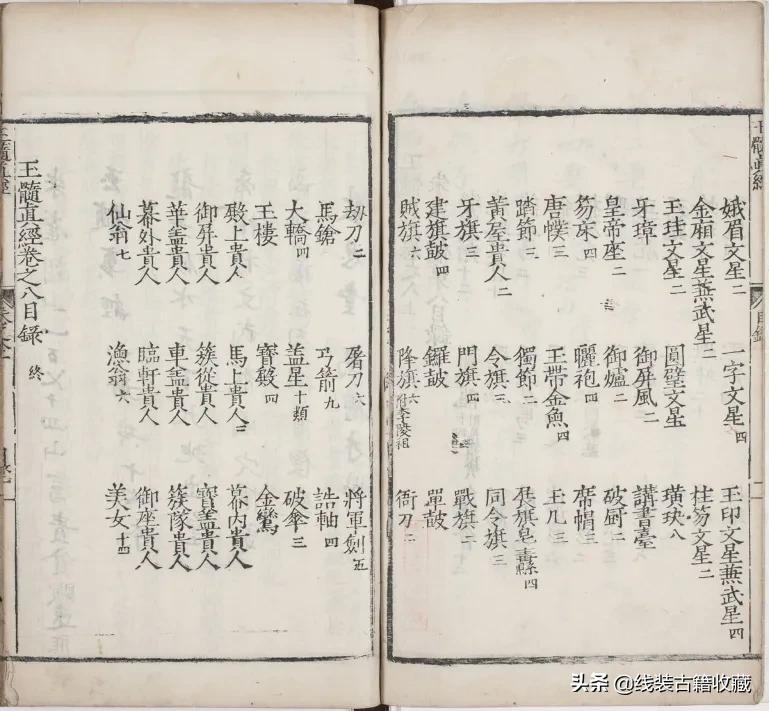 娥眉文星二 一字文星四 玉印文星蕪武星四
金廂文星蕪武星二 柱笏文星二
玉珪文星二 圓璧文星 璜玦八
牙璋二 御屏風二 講書臺
皇帝座二 御爐二 破厨二
笏床四 曬袍四 席帽三
唐幞三 玉帶金魚四 玉几三
踏節三 獨節二
黃屋貴人二 令旗三 同令旗三
牙旗三 門旗四 戰旗二
建旗皷四 鑼皷 單皷
賊旗六 降旗六附李陵祖 衙刀二
刼刀二 屠刀六 將軍劍五
馬鎗 弓箭九 誥軸四
大轎四 盖星十類 破傘三
王樓 寶殿四 金鸞
殿上貴人 馬上貴人三 幕內貴人
御屏貴人 簇從貴人 寶盖貴人
華盖貴人 車盖貴人 簇隊貴人
幕外貴人 臨軒貴人 御座貴人
仙翁七 漁翁六 美女十四
玉髓真經卷之八目録 終
目録
头条 @线装古籍收藏